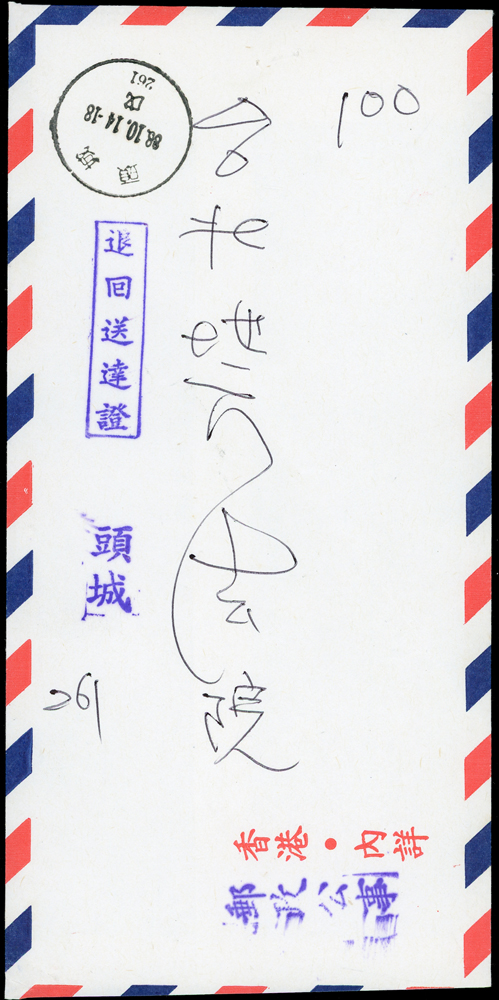 100
頭城
88.10.14-18
戊
261
台北
院
退回送達證
頭城
261
香港・內詳
郵政公事